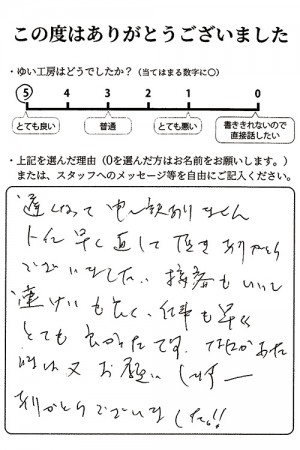 この度はありがとうございました
・ゆい工房はどうでしたか？（当てはまる数字に○）
5 4 3 2 1 0
とても良い 普通 とても悪い 書ききれないので直接話したい
・上記を選んだ理由（0を選んだ方はお名前をお願いします。）
または、スタッフへのメッセージ等を自由にご記入ください。
遅くなって申し訳ありません
トイレ早く直して頂きありがとう
ございました。接客もいいし
運けいもよく、仕事も早く
とても良かったです。なにかあった
時は又お願いします
ありがとうございました!!